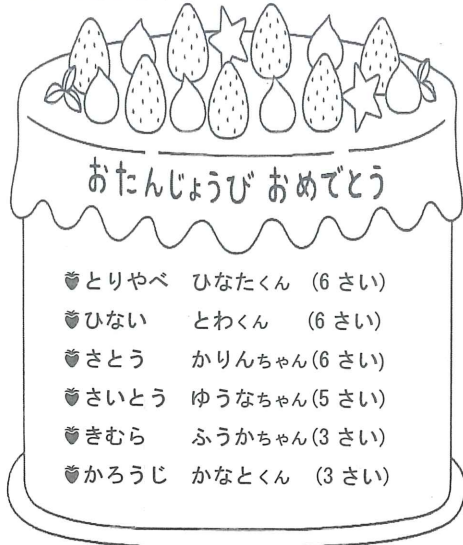 おたんじょうび おめでとう
とりやべ ひなたくん (6 さい)
ひない とわくん (6 さい)
さとう かりんちゃん(6 さい)
さいとう ゆうなちゃん(5 さい)
きむら ふうかちゃん(3 さい)
かろうじ かなとくん (3 さい)